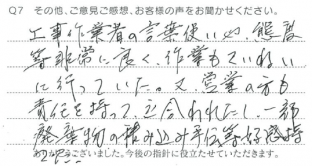 Q7 その他、ご意見ご感想、お客様の声をお聞かせください。
工事作業者の言葉使いや、態度
等非常に良く、作業もていねい
に行っていた。又、営業の方も
責任を持って、立合われたし、一部
廃棄物の積み込み手伝等好感持
ございました。今後の指針に役立たせていただきます。